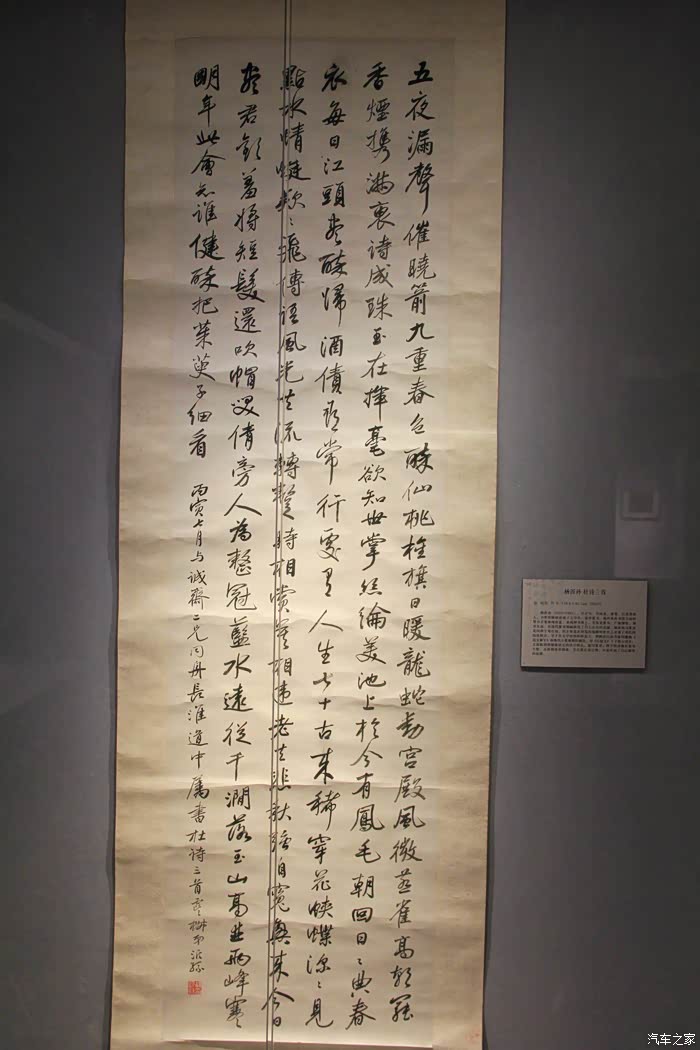 五夜漏聲催曉箭九重春色醉仙桃旌旗日暖龍蛇動宮殿風微燕雀高朝罷
香煙携滿褎詩成珠玉在揮毫欲知世掌絲綸美池上於今有鳳毛朝回日〻典春
衣每日江頭盡醉歸酒債尋常行處有人生七十古來稀穿花蛺蝶深〻見
點水蜻蜓款〻飛傳語風光共流轉暫時相賞莫相違老去悲秋強自寬興來今日
盡君歡羞將短髮還吹帽笑倩旁人為整冠藍水遠從千澗落玉山高並兩峰寒
明年此會知誰健醉把茱萸子細看
丙寅七月与誠齋二兄同舟長淮道中屬書杜詩三首 弟沂孫
杨沂孙 杜诗三首
汽车之家